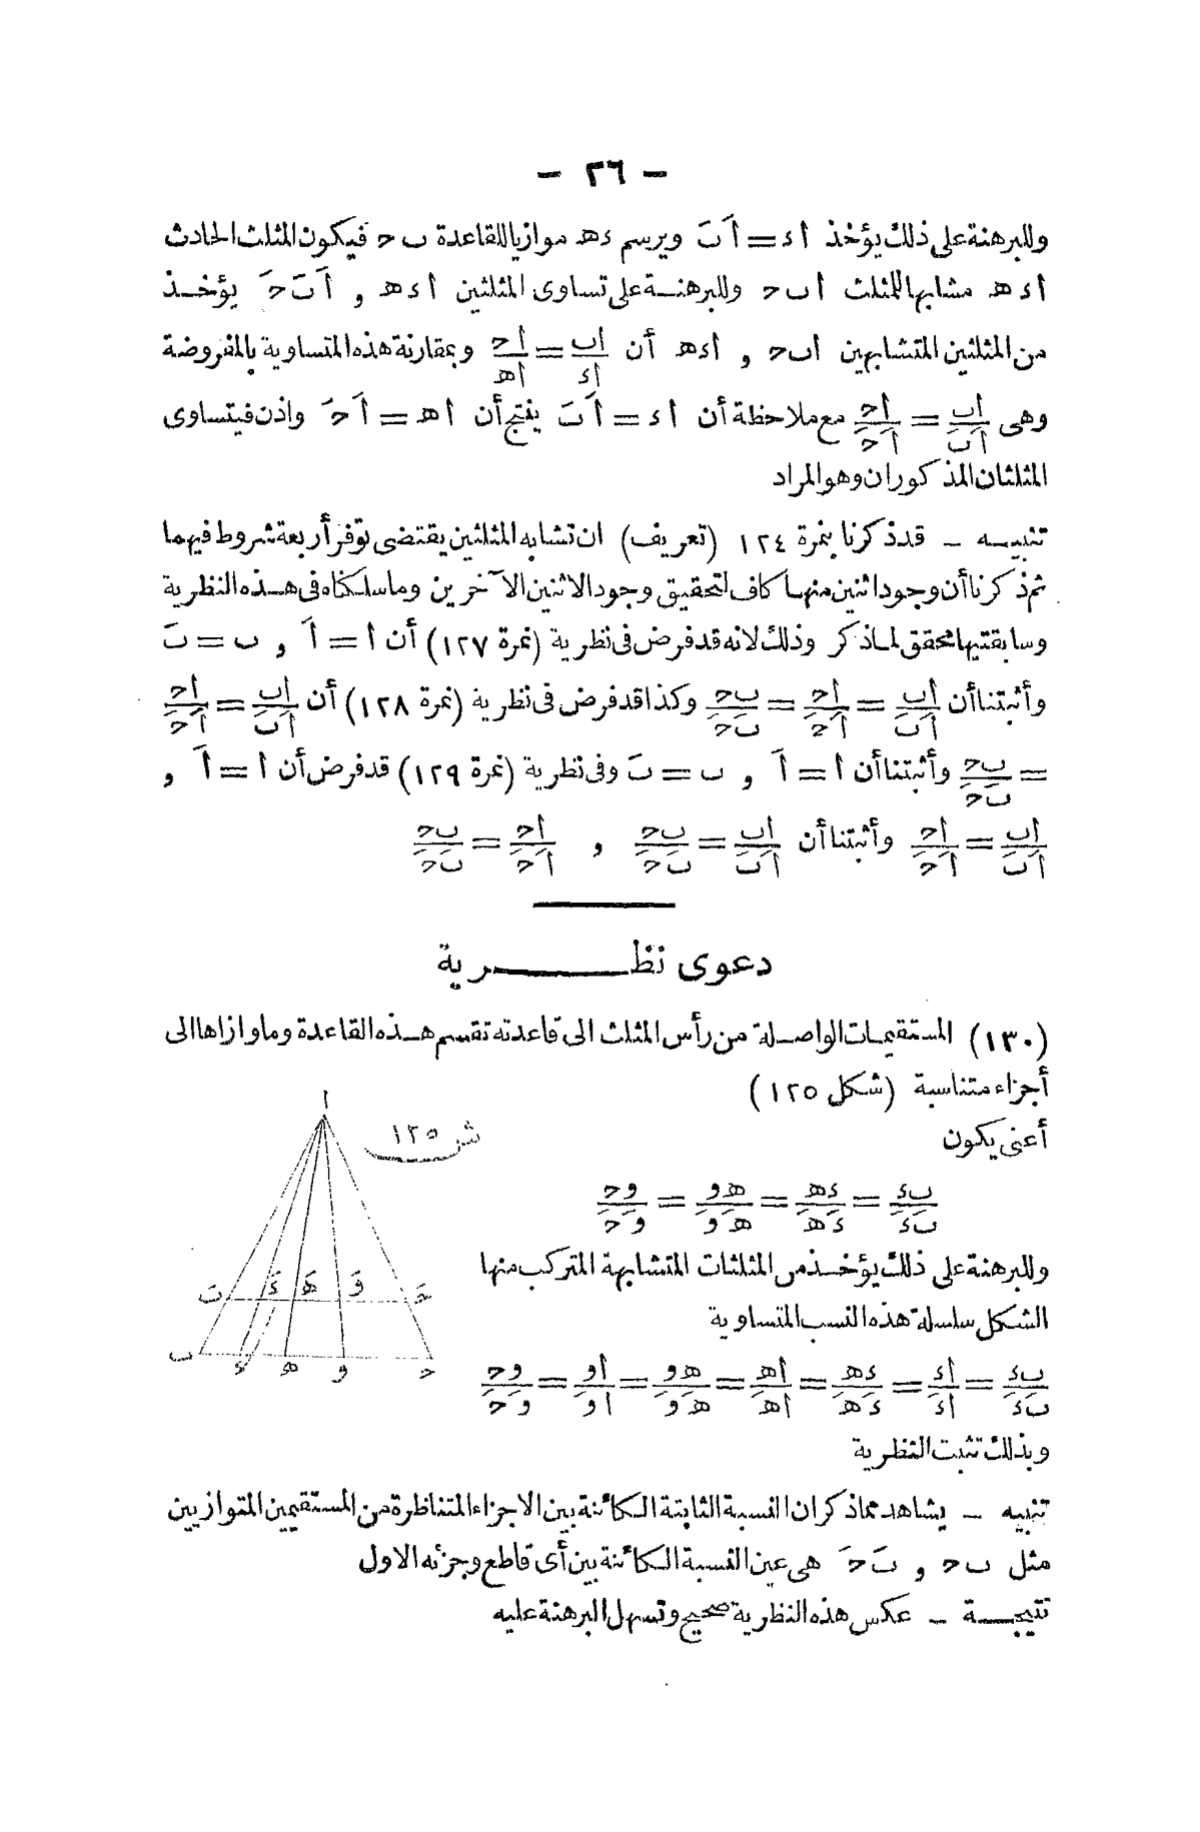 - ٣٦ -
وللبرهنة على ذلك يؤخذ أ ء = أَ بَ ويرسم ء ه موازيا للقاعدة ب ح فيكون المثلث الحادث
أ ء ه مشابها للمثلث أ ب ح وللبرهنــة على تساوى المثلثين أ ء ه و أَ بَ حَ يؤخــذ
من المثلثين المتشابهين أ ب ح و أ ء ه أن أب/أء = أح/أه وبمقارنة هذه المتساوية بالمفروضة
وهى أب/أَبَ = أح/أَحَ مع ملاحظة أن أ ء = أَ بَ ينتج أن أ ه = أَ حَ واذن فيتساوى
المثلثان المذكوران وهو المراد
تنبيــه - قد ذكرنا بنمرة ١٢٤ (تعريف) ان تشابه المثلثين يقتضى توفر أربعة شروط فيهما
ثم ذكرنا أن وجود اثنين منهـا كاف لتحقيق وجود الاثنين الآخرين وما سلكناه فى هــذه النظرية
وسابقتيها محقق لمـا ذكر وذلك لانه قد فرض فى نظرية (نمرة ١٢٧) أن أ = أَ و ب = بَ
وأثبتنا أن أب/أَبَ = أح/أَحَ = بح/بَحَ وكذا قد فرض فى نظرية (نمرة ١٢٨) أن أب/أَبَ = أح/أَحَ
= بح/بَحَ وأثبتنا أن أ = أَ و ب = بَ وفى نظرية (نمرة ١٢٩) قد فرض أن أ = أَ و
أب/أَبَ = أح/أَحَ وأثبتنا أن أب/أَبَ = بح/بَحَ و أح/أَحَ = بح/بَحَ
دعوى نظــــــرية
(١٣٠) المستقيمـات الواصــلة من رأس المثلث الى قاعدته تقسم هــذه القاعدة وما وازاها الى
أجزاء متناسبة (شكل ١٢٥)
أعنى يكون
بء/بَءَ = ءه/ءَهَ = هو/هَوَ = وح/وَحَ
وللبرهنة على ذلك يؤخــذ من المثلثات المتشابهة المتركب منها
الشكل سلسلة هذه النسب المتساوية
بء/بَءَ = أء/أءَ = ءه/ءَهَ = أه/أهَ = هو/هَوَ = أو/أوَ = وح/وَحَ
وبذلك تثبت النظرية
تنبيه - يشاهد مما ذكر ان النسبة الثابتة الكائنة بين الاجزاء المتناظرة من المستقيمين المتوازيين
مثل ب ح و بَ حَ هى عين النسبة الكائنة بين أى قاطع وجزئه الاول
نتيجــة - عكس هذه النظرية صحيح وتسهل البرهنة عليه
شـ ١٢٥
أ
بَ ءَ هَ وَ حَ
ب ء ه و ح